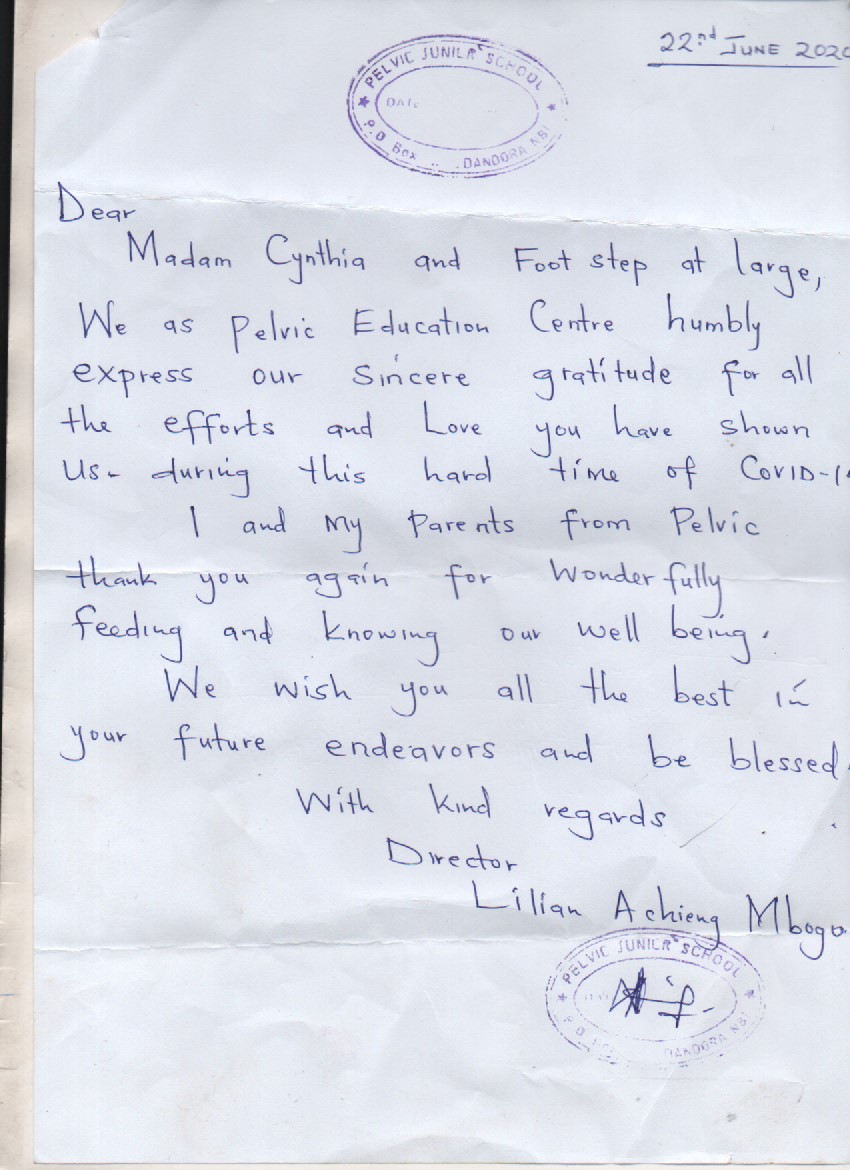 22nd JUNE 2020
PELVIC JUNIOR SCHOOL
DATE
P.O Box DANDORA NBI
Dear
Madam Cynthia and Foot step at large,
We as Pelvic Education Centre humbly
express our sincere gratitude for all
the efforts and Love you have shown
us- during this hard time of COVID-1
I and my Parents from Pelvic
thank you again for Wonderfully
feeding and knowing our well being.
We wish you all the best in
your future endeavors and be blessed.
With kind regards
Director
Lilian Achieng Mbogo
PELVIC JUNIOR SCHOOL
DANDORA NBI